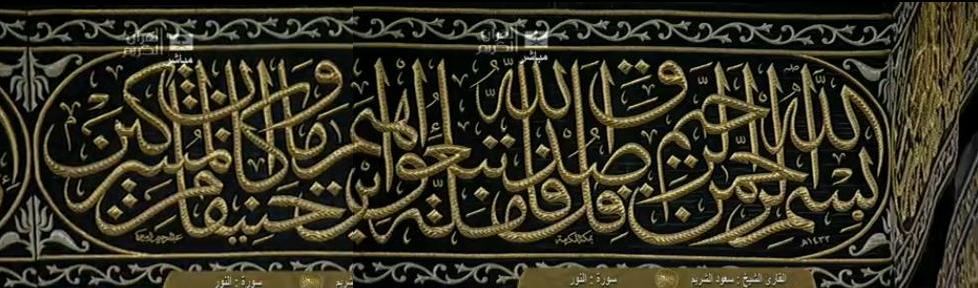 القرآن الكريم
مباشر
القرآن الكريم
مباشر
بسم الله الرحمن الرحيم قل صدق الله فاتبعوا ملة إبراهيم حنيفا وما كان من المشركين
١٤٣٢هـ
بمكة المكرمة
القارئ الشيخ : سعود الشريم
سورة : النور
سورة : النور